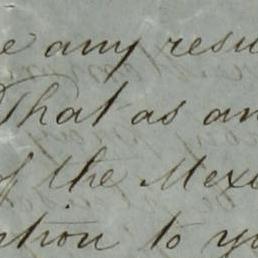 e any resu
That as an
of the Mexi
ption to yo